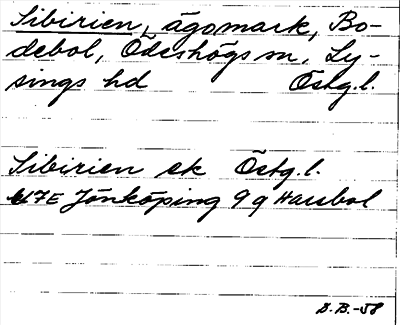 Sibirien, ägomark, Bo-
debol, Ödeshögs sn, Ly-
sings hd Östg.l.
Sibirien ek Östg.l.
7E Jönköping 9g Hassbol
B.-58